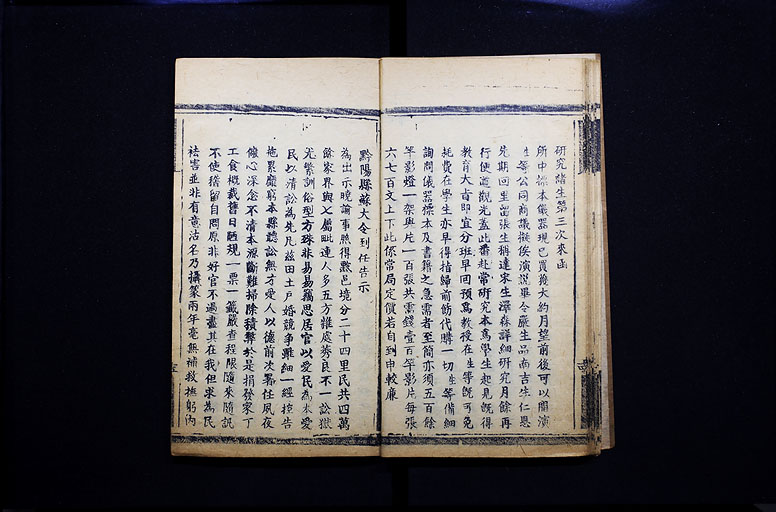 研究諸生第三次來函
所中標本儀器現已買獲大約月望前後可以開演
生等公同商議擬俟演說畢令嚴生品南吉生仁恩
先期回里留張生稱達宋生澤森詳細研究月餘再
行使道觀光蓋此番赴常研究本爲學生起見旣得
教育大旨即宜分班早回預爲教授在生等旣可免
耗費在學生亦早得指歸前飭代購一切生等備細
詢問儀器標本及書籍之急需者至簡亦須五百餘
竿影燈一架與片一百張共需錢壹百竿影片每張
六七百文上下此係常局定價若自到申較廉
黔陽縣蘇大令到任告示
為出示曉諭事照得黔邑境分二十四里民共四萬
餘家界與七屬毗連人多五方雜處莠良不一訟獄
尤繁訓俗型方殊非易易竊思居官以愛民為本愛
民以清訟為先凡茲田土戶婚競爭雖細一經控告
拖累靡窮本縣聽訟無才愛人以德前次署任夙夜
儆心深念不清本源斷難掃除積弊於是捐發家丁
工食概裁舊日陋規一票一籤嚴查程限隨來隨訊
不使稽留自問原非好官不過盡其在我但求為民
祛害並非有意沽名乃攝篆兩年毫無補救撫躬內